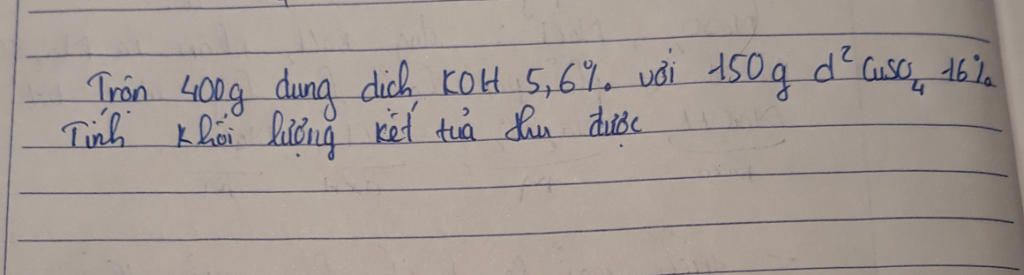 Trộn 400g dung dịch KOH 5,6% với 150g d² CuSO₄ 16%
Tính khối lượng kết tủa thu được